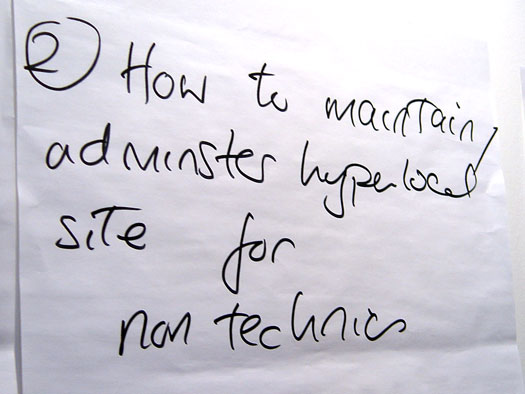 ② How to maintain/
adminster hyperlocal
site for
non technics